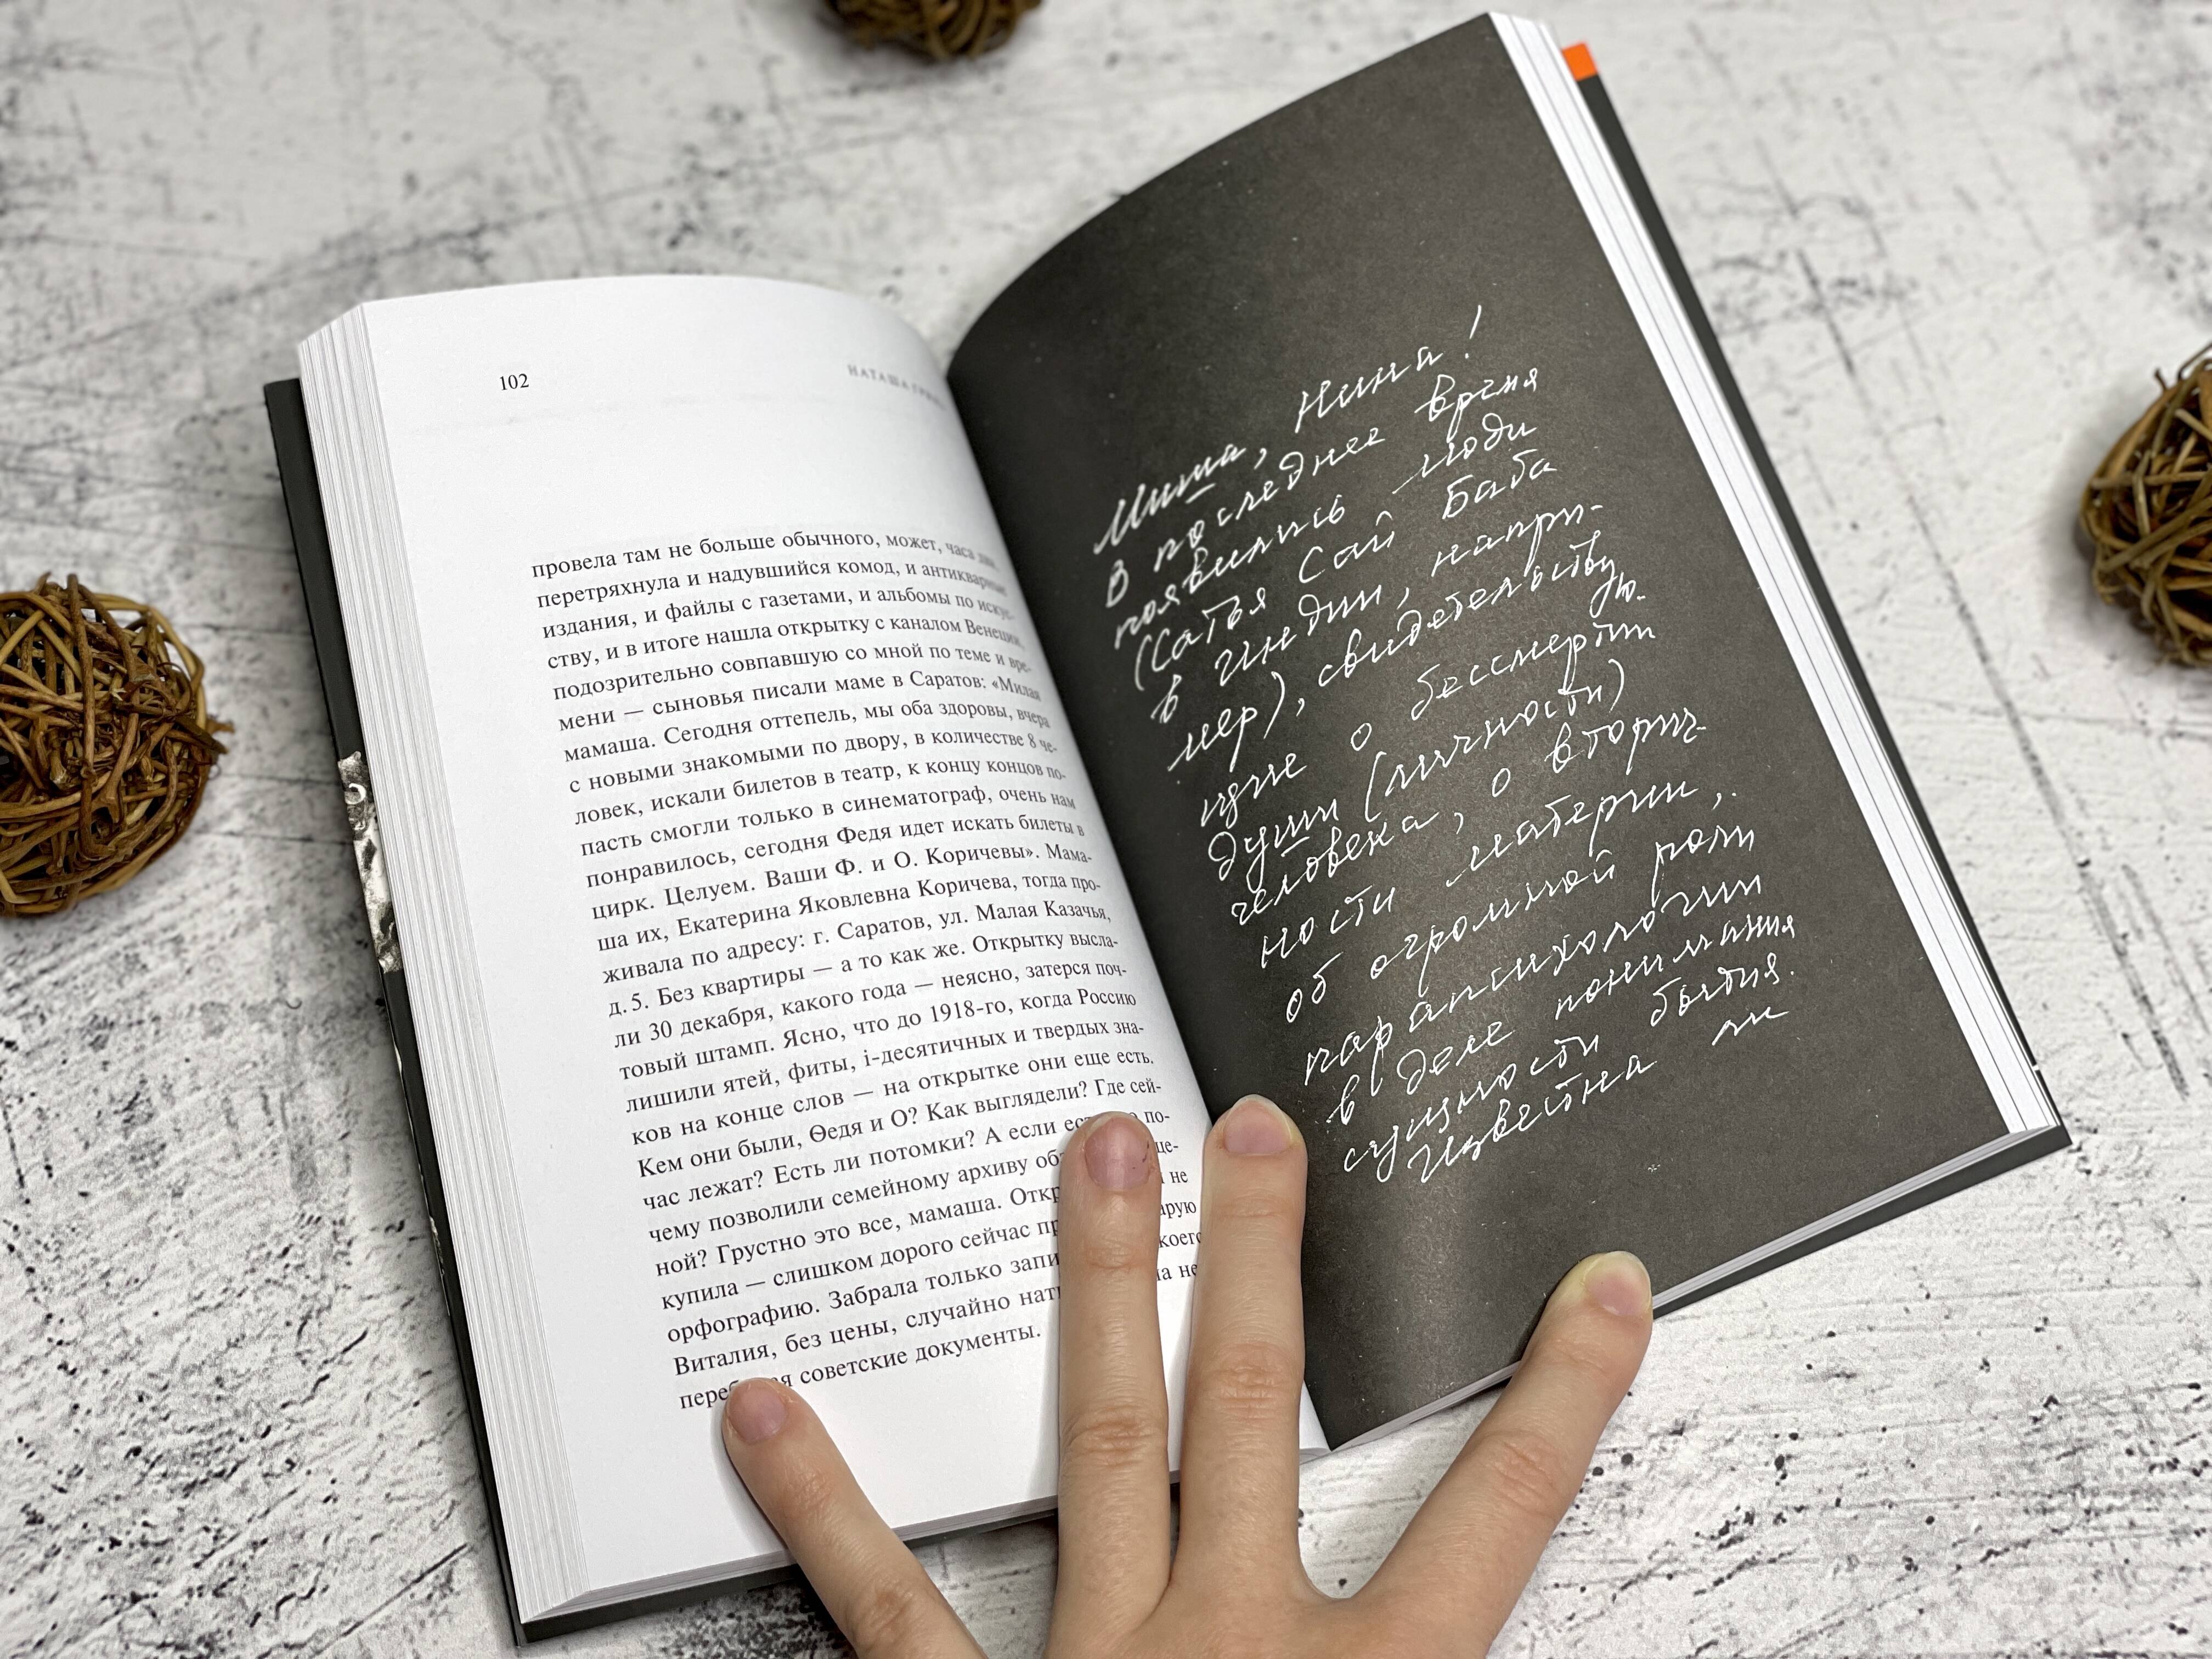 102
НАТАША
провела там не больше обычного, может, часа два
перетряхнула и надувшийся комод, и антикварные
издания, и файлы с газетами, и альбомы по искус-
ству, и в итоге нашла открытку с каналом Венеции,
подозрительно совпавшую со мной по теме и вре-
мени — сыновья писали маме в Саратов: «Милая
мамаша. Сегодня оттепель, мы оба здоровы, вчера
с новыми знакомыми по двору, в количестве 8 че-
ловек, искали билетов в театр, к концу концов по-
пасть смогли только в синематограф, очень нам
понравилось, сегодня Федя идет искать билеты в
цирк. Целуем. Ваши Ф. и О. Коричевы». Мама-
ша их, Екатерина Яковлевна Коричева, тогда про-
живала по адресу: г. Саратов, ул. Малая Казачья,
д. 5. Без квартиры — а то как же. Открытку высла-
ли 30 декабря, какого года — неясно, затерся поч-
товый штамп. Ясно, что до 1918-го, когда Россию
лишили ятей, фиты, i-десятичных и твердых зна-
ков на конце слов — на открытке они еще есть.
Кем они были, Ѳедя и О? Как выглядели? Где сей-
час лежат? Есть ли потомки? А если есть, по-
чему позволили семейному архиву це-
ной? Грустно это все, мамаша. не
купила — слишком дорого сейчас
орфографию. Забрала только
Виталия, без цены, случайно не
советские документы.
Миша, Нина!
В последнее время
появились люди
(Сатья Саи Баба
в Индии, напри-
мер), свидетельству
ю-
щие о бессмертии
души (личности)
человека, о вторич-
ности материи,
об огромной роли
парапсихологии
в деле понимания
сущности бытия.
Известна ли